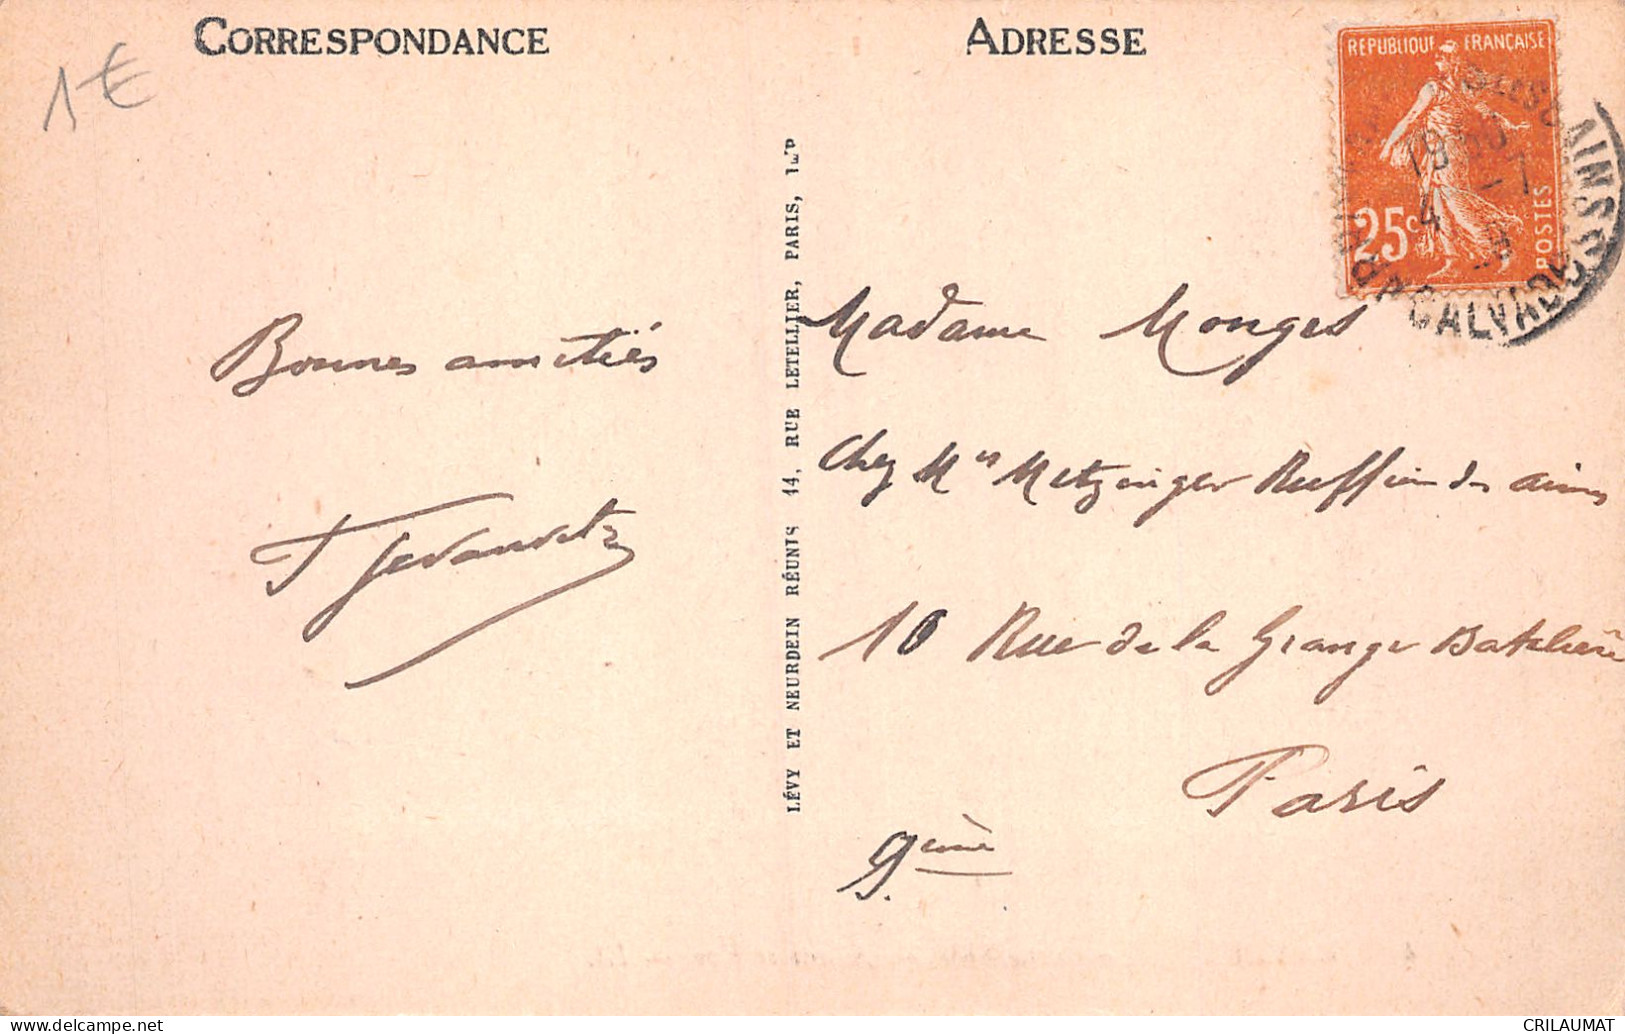 CORRESPONDANCE
ADRESSE
1€
RÉPUBLIQUE FRANÇAISE
25c
POSTES
CALVADOS
Bonnes amitiés
LÉVY ET NEURDEIN RÉUNIS 44, RUE LETELLIER, PARIS, IMP
Madame Monges
Chez Mrs Metzinger Ruffin des aines
10 Rue de la Grange Batelière
Paris
9ème
CRILAUMAT